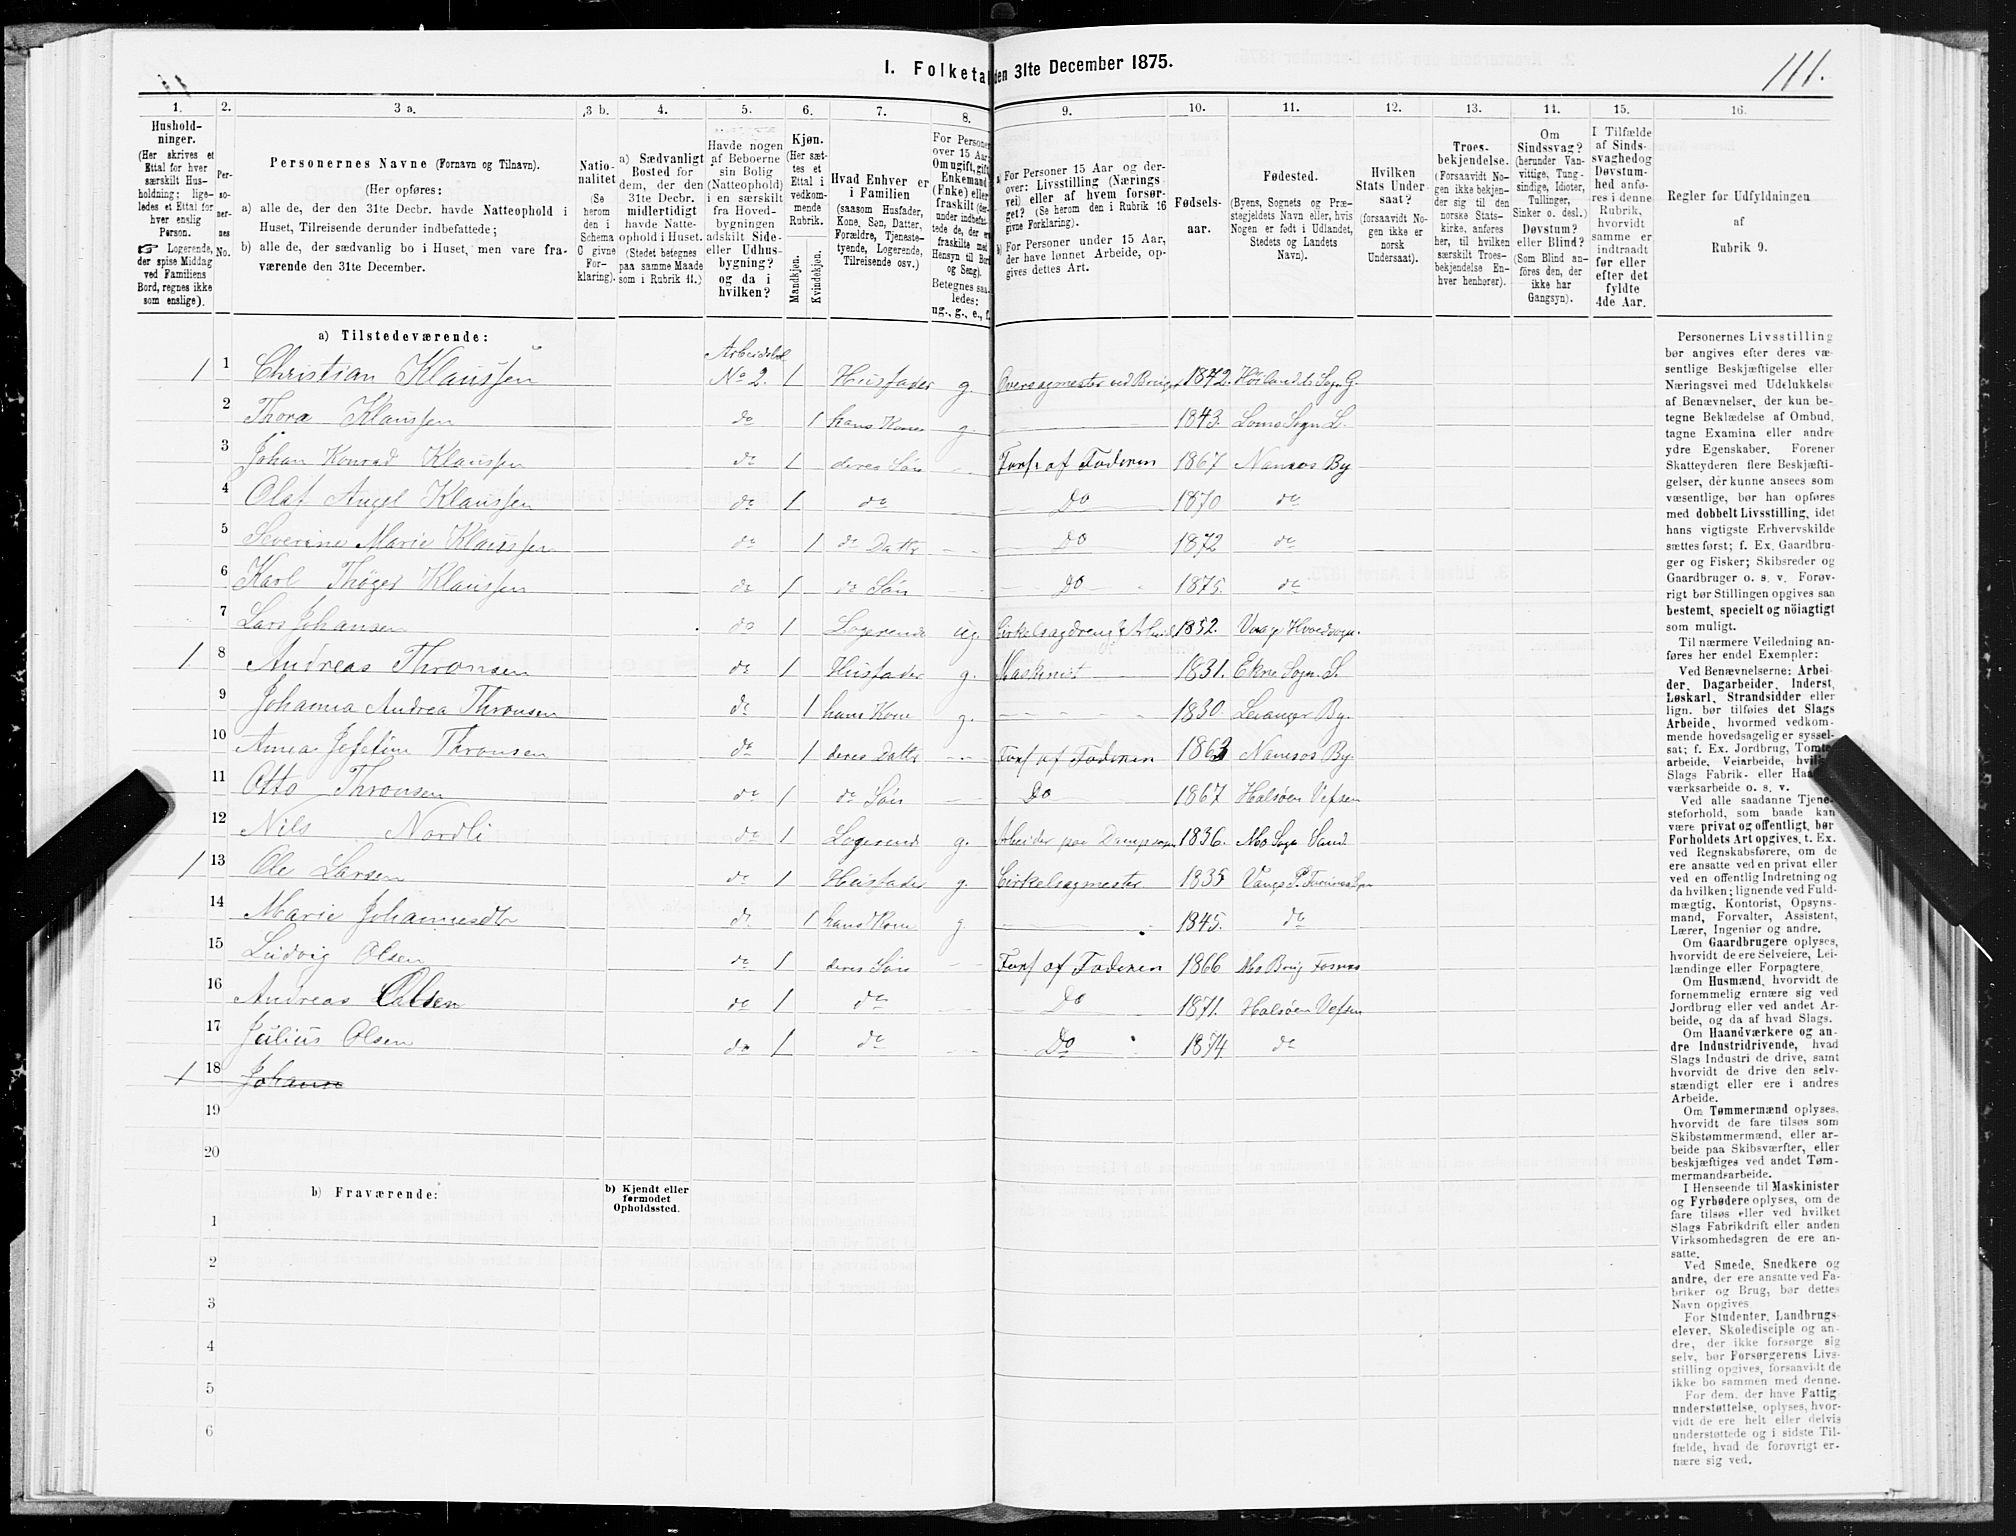 I. Folketal den 31te December 1875.
111.
1. 2. 3 a. 3 b. 4. 5. 6. 7. 8. 9. 10. 11. 12. 13. 14. 15. 16.
Hushold-
ninger.
(Her skrives et
Ettal for hver
særskilt Hus-
holdning; lige-
ledes et Ettal for
hver enslig
Person.
☞ Logerende,
der spise Middag
ved Familiens
Bord, regnes ikke
som enslige).
Per-
so-
ner-
nes
No.
Personernes Navne (Fornavn og Tilnavn).
(Her opføres:
a) alle de, der den 31te Decbr. havde Natteophold i
Huset, Tilreisende derunder indbefattede;
b) alle de, der sædvanlig bo i Huset, men vare fra-
værende den 31te December.
Natio-
nalitet
(Se
herom
den i
Schema
C givne
For-
klaring).
a) Sædvanligt
Bosted for
dem, der den
31te Decbr.
midlertidigt
havde Natte-
ophold i Huset.
(Stedet betegnes
paa samme Maade
som i Rubrik 11.)
Havde nogen
af Beboerne
sin Bolig
(Natteophold)
i en særskilt
fra Hoved-
bygningen
adskilt Side-
eller Udhus-
bygning?
og da i
hvilken?
Kjøn.
(Her sæt-
tes et
Ettal i
vedkom-
mende
Rubrik.
Mandkjøn.
Kvindekjøn.
Hvad Enhver er
i Familien
(saasom Husfader,
Kone, Søn, Datter,
Forældre, Tjeneste-
tyende, Logerende,
Tilreisende osv.)
For Personer
over 15 Aar:
Om ugift, gift,
Enkemand
(Enke) eller
fraskilt (der-
under indbefat-
tede de, der er
fraskilte med
Hensyn til Bord
og Seng).
Betegnes saa-
ledes:
ug., g., e., f.
a) For Personer 15 Aar og der-
over: Livsstilling (Nærings-
vei) eller af hvem forsør-
get? (Se herom den i Rubrik 16
givne Forklaring.)
b) For Personer under 15 Aar,
der have lønnet Arbeide, op-
gives dettes Art.
Fødsels-
aar.
Fødested.
(Byens, Sognets og Præ-
stegjeldets Navn eller, hvis
Nogen er født i Udlandet,
Stedets og Landets
Navn).
Hvilken
Stats Under-
saat?
(forsaavidt No-
gen ikke er
norsk
Undersaat).
Troes-
bekjendelse.
(Forsaavidt No-
gen ikke bekjen-
der sig til den
norske Stats-
kirke, anføres
her, til hvilken
særskilt Troes-
bekjendelse En-
hver henhører).
Om
Sindssvag?
(herunder Van-
vittige, Tung-
sindige, Idioter,
Tullinger,
Sinker o. desl.)
Døvstum?
eller Blind?
(Som Blind an-
føres den, der
ikke har
Gangsyn).
I Tilfælde
af Sinds-
svaghed og
Døvstum-
hed anfø-
res i denne
Rubrik,
hvorvidt
samme er
indtraadt
før eller
efter det
fyldte
4de Aar.
Regler for Udfyldningen
af
Rubrik 9.
a) Tilstedeværende:
1 1 Christian Klaussen Arbeidsbol No 2. 1 Husfader g. Oversagmester ved Bruget 1842. Høilandets Sogn G.
2 Thora Klaussen do 1 hans Kone g. 1843. Loms Sogn L.
3 Johan Konrad Klaussen do 1 deres Søn Fors. af Faderen 1867 Namsos By
4 Olaf Angel Klaussen do 1 do Do 1870 do
5 Severine Marie Klaussen do 1 do Datter Do 1872 do
6 Karl Thøger Klaussen do 1 do Søn Do 1875. do
7 Lars Johansen do 1 Logerende ug. Cirkelsagdreng 1852. Vaage Hovedsogn.
1 8 Andreas Thronsen do 1 Husfader g. Maskinist 1831. Ekne Sogn S.
9 Johanna Andrea Thronsen do 1 hans Kone g. 1830. Levanger By.
10 Anna Josefine Thronsen do 1 deres Datter Fors af Faderen 1863 Namsos By.
11 Otto Thronsen do 1 do Søn Do 1867 Halsøen Vefsen
12 Nils Nordli do 1 Logerend g. Arbeider paa Dampsagen 1836. Mo Sogn Sand.
1 13 Ole Larsen do 1 Husfader g. Cirkelsagmester 1835 Vangs P.
14 Marie Johannesdtr do 1 hans Kone g. 1845. do
15 Ludvig Olsen do 1 deres Søn Fors af Faderen 1866 Mo Brug Fosnæs
16 Andreas Olsen do 1 do Do 1871. Halsøen Vefsen
17 Julius Olsen do 1 do Do 1874 do
1 18 Johann
19
20
b) Fraværende:
b) Kjendt eller
formodet
Opholdssted.
1
2
3
4
5
6
Personernes Livsstilling
bør angives efter deres væ-
sentlige Beskjæftigelse eller
Næringsvei med Udelukkelse
af Benævnelser, der kun be-
tegne Beklædelse af Ombud,
tagne Examina eller andre
ydre Egenskaber. Forener
Skatteyderen flere Beskjæfti-
gelser, der kunne ansees som
væsentlige, bør han opføres
med dobbelt Livsstilling, idet
hans vigtigste Erhvervskilde
sættes først; f. Ex. Gaardbru-
ger og Fisker; Skibsreder og
Gaardbruger o. s. v. Forøv-
rigt bør Stillingen opgives saa
bestemt, specielt og nöiagtigt
som muligt.
Til nærmere Veiledning an-
føres her endel Exempler:
Ved Benævnelserne: Arbei-
der, Dagarbeider, Inderst,
Løskarl, Strandsidder eller
lign. bør tilføies det Slags
Arbeide, hvormed vedkom-
mende hovedsagelig er syssel-
sat; f. Ex. Jordbrug, Tomte-
arbeide, Veiarbeide, hvilket
Slags Fabrik- eller Haand-
værksarbeide o. s. v.
Ved alle saadanne Tjene-
steforhold, som baade kan
være privat og offentligt, bør
Forholdets Art opgives, t. Ex.
ved Regnskabsførere, om de
ere ansatte ved en privat eller
ved en offentlig Indretning og
da hvilken; lignende ved Fuld-
mægtig, Kontorist, Opsyns-
mand, Forvalter, Assistent,
Lærer, Ingeniør og andre.
Om Gaardbrugere oplyses,
hvorvidt de ere Selveiere, Lei-
lændinge eller Forpagtere.
Om Husmænd, hvorvidt de
fornemmelig ernære sig ved
Jordbrug eller ved andet Ar-
beide, og da af hvad Slags.
Om Haandværkere og an-
dre Industridrivende, hvad
Slags Industri de drive, samt
hvorvidt de drive den selv-
stændigt eller ere i andres
Arbeide.
Om Tømmermænd oplyses,
hvorvidt de fare tilsøs som
Skibstømmermænd, eller ar-
beide paa Skibsværfter, eller
beskjæftiges ved andet Tøm-
mermandsarbeide.
I Henseende til Maskinister
og Fyrbødere oplyses, om de
fare tilsøs eller ved hvilket
Slags Fabrikdrift eller anden
Virksomhedsgren de ere an-
satte.
Ved Smede, Snedkere og
andre, der ere ansatte ved Fa-
briker og Brug, bør dettes
Navn opgives.
For Studenter, Landbrugs-
elever, Skoledisciple og an-
dre, der ikke forsørge sig
selv, bør Forsørgerens Livs-
stilling opgives, forsaavidt de
ikke bo sammen med denne.
For dem, der have Fattig-
understøttelse, oplyses, hvor-
vidt de ere helt eller delvis
understøttede og i sidste Til-
fælde, hvad de forøvrigt er-
nære sig ved.